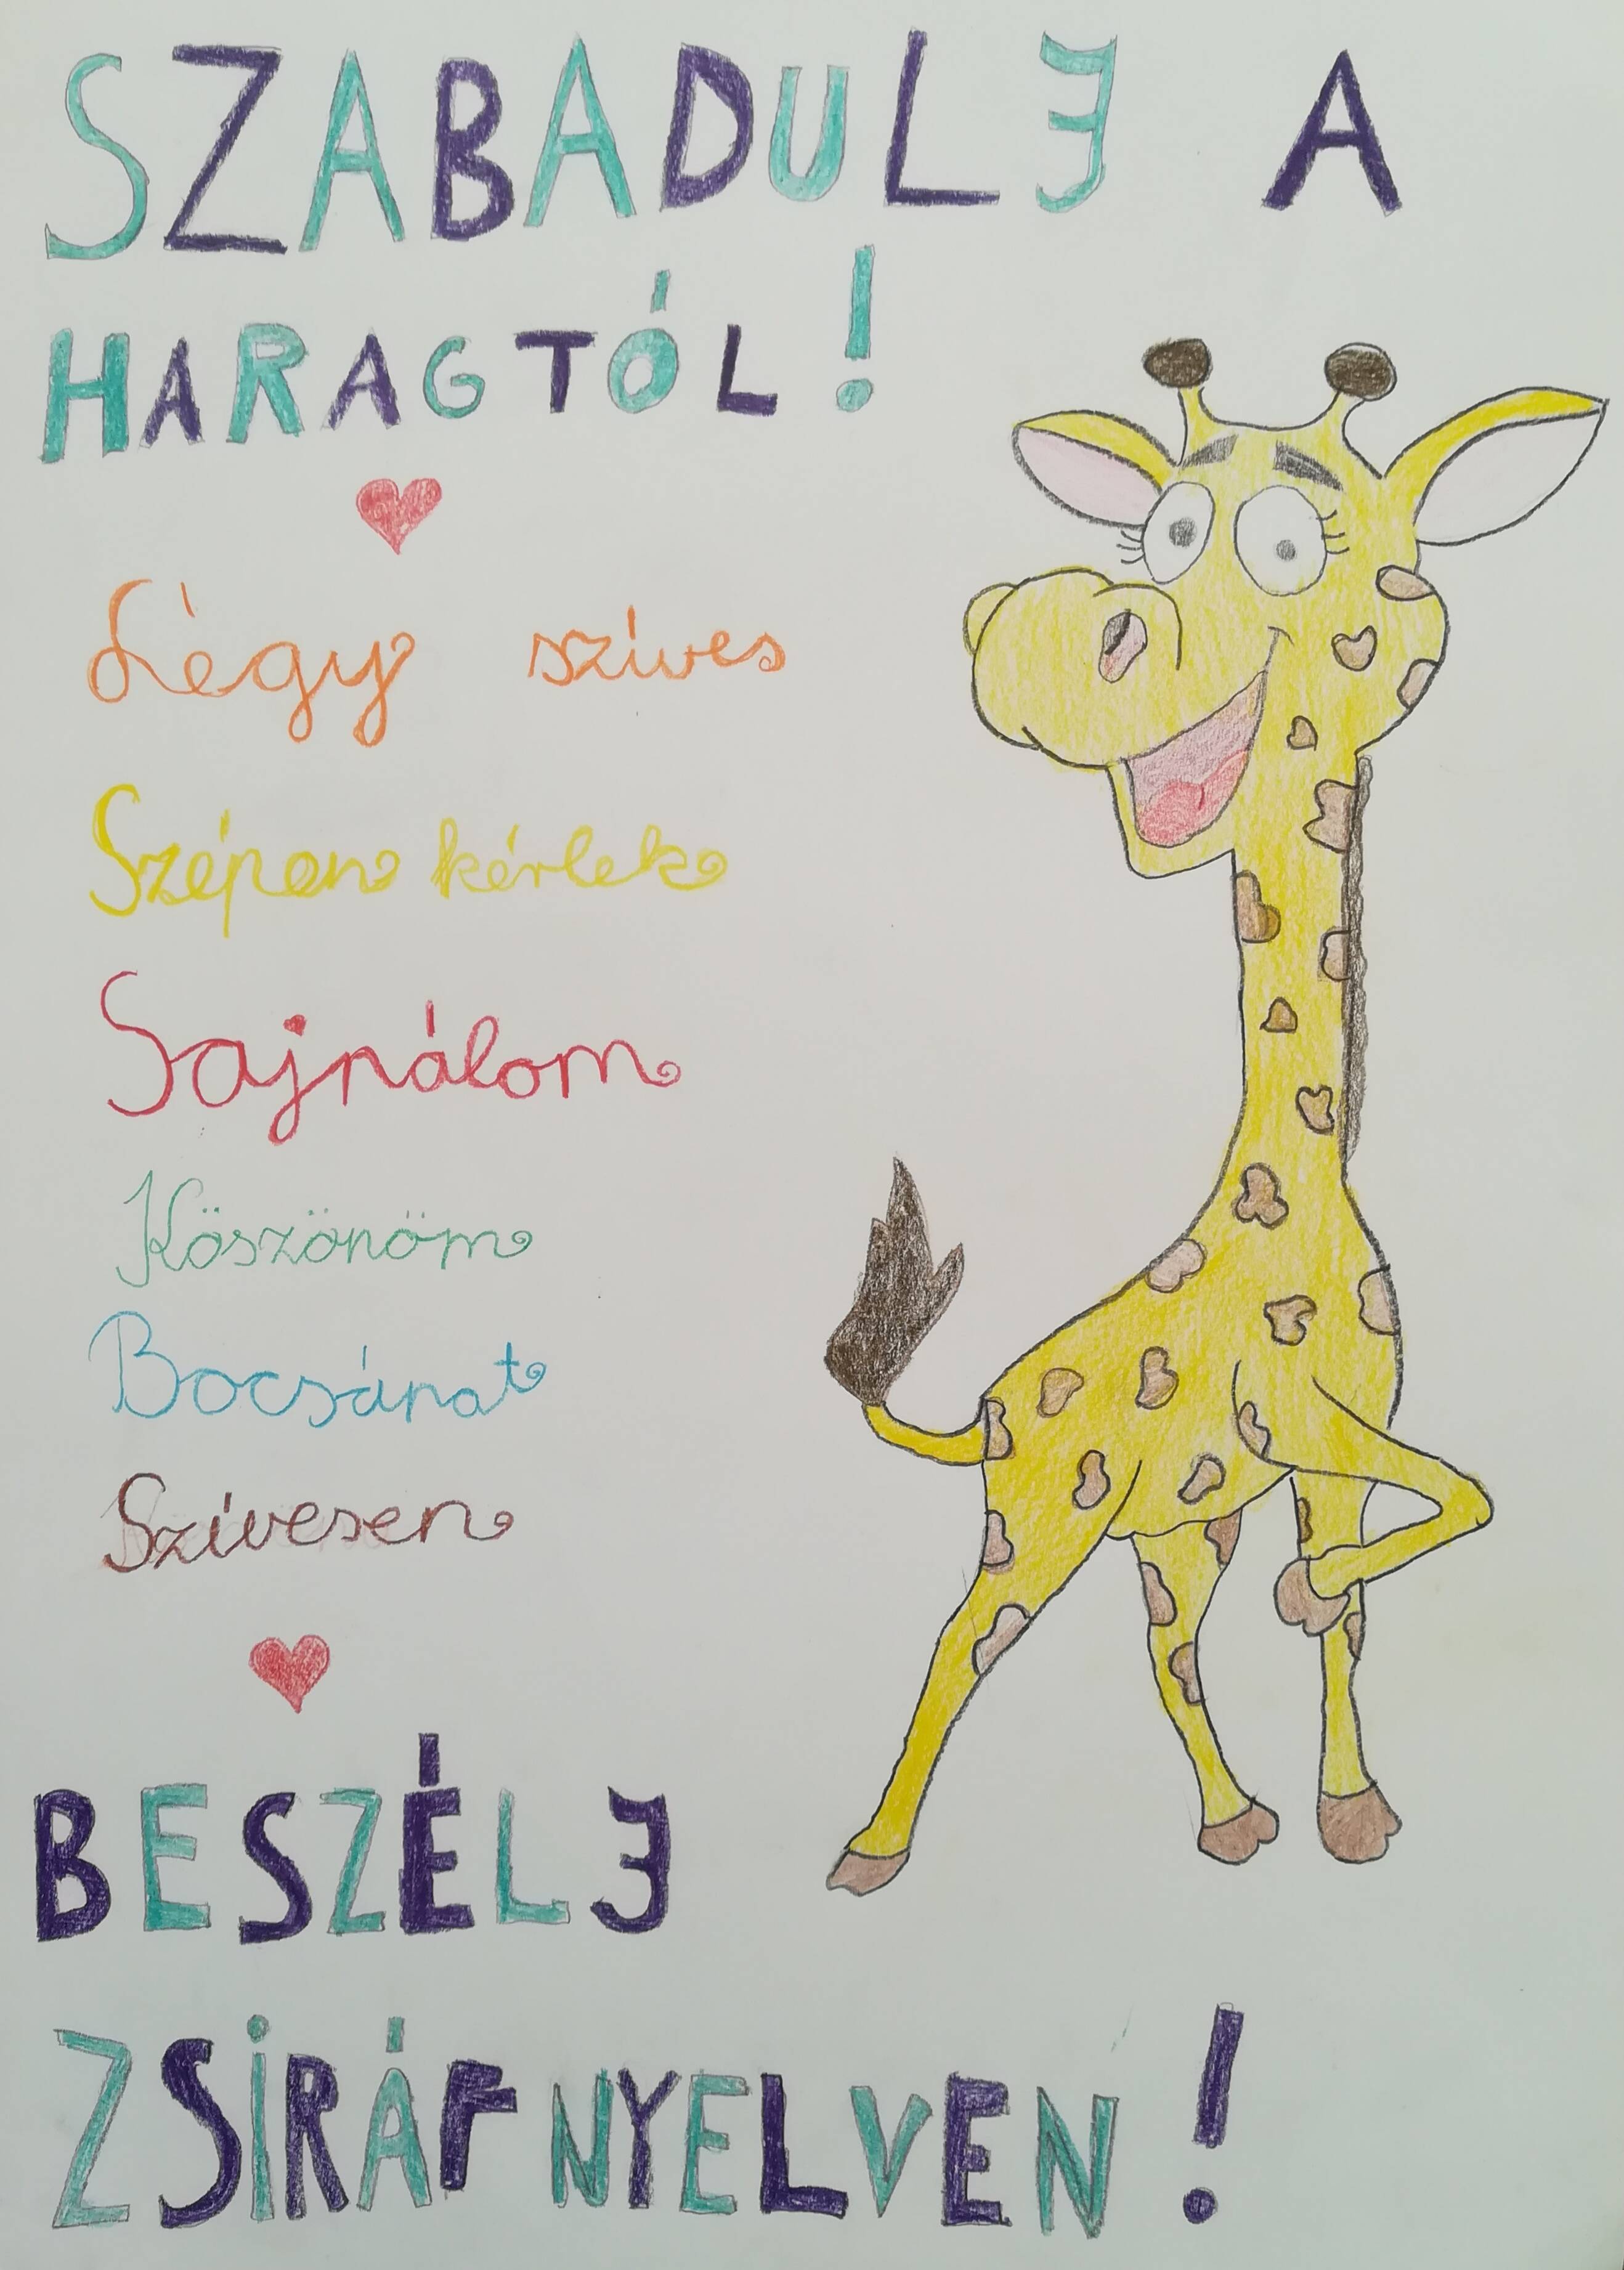 SZABADULJ A
HARAGTÓL!
Légy szíves
Szépen kérlek
Sajnálom
Köszönöm
Bocsánat
Szívesen
BESZÉLJ
ZSIRÁFNYELVEN!